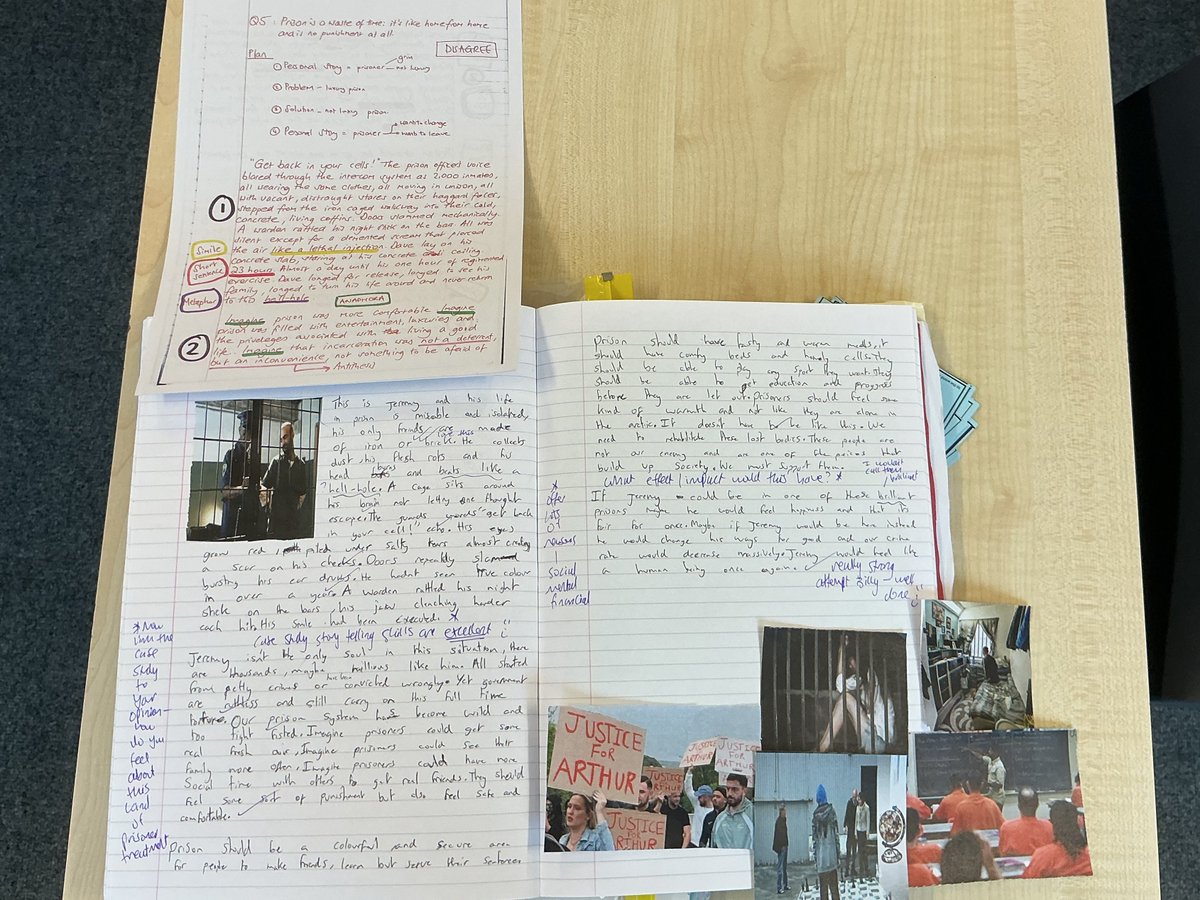 Q5: Prison is a waste of time: it's like home from home
and is no punishment at all.
DISAGREE
Plan
① Personal story = prisoner
grim
not luxury
② Problem - luxury prison
③ Solution - not luxury prison
④ Personal story = prisoner
wants to change
wants to leave
"Get back in your cells!" The prison officer's voice
blared through the intercom system as 2,000 inmates,
all wearing the same clothes, all moving in unison, all
with vacant, distraught stares on their haggard faces,
stepped from the iron caged walkway into their cold,
concrete, living coffins. Doors slammed mechanically.
A warden rattled his night stick on the bars. All was
silent except for a demented scream that pierced
the air like a lethal injection. Dave lay on his
concrete slab, staring at his concrete ceiling
23 hours. Almost a day until his one hour of regimented
exercise. Dave longed for release, longed to see his
family, longed to turn his life around and never return
to this hell-hole.
①
Simile
Short sentence
Metaphor
ANAPHORA
Imagine prison was more comfortable. Imagine
prison was filled with entertainment, luxuries and
the privileges associated with living a good
life. Imagine that incarceration was not a deterrent,
but an inconvenience, not something to be afraid of
②
Antithesis
This is Jeremy and his life
in prison is misrable and isolated,
his only freinds are made
love this
of iron or brick. He collects
dust, his flesh rots and his
head burns and beats like a
hell-hole. A cage sits around
his brain not letting one thought
escape. The guards words "get back
in your cell!" echo. His eyes
grow red, paled under salty tears almost creating
a scar on his cheeks. Doors repeatedly slam
bursting his ear drums. He hadnt seen true colour
in over a year. A warden rattled his night
stick on the bars, his jaw clenching harder
each hit. His smile had been executed. *
Case study story telling skills are excellent
Jeremy isn't the only soul in this situation, there
are thousands, maybe millions like him. All started
from petty crimes or convicted wrongly. Yet government
are ruthless and still carry on this full time
torture. Our prison system has become wild and
too tight fisted. Imagine prisoners could get some
real fresh air. Imagine prisoners could see their
family more often. Imagine prisoners could have more
Social time with others to get real freinds. They should
feel some sort of punishment but also feel safe and
comfortable.
* Now
link the
case
study
to
your
opinion -
how
do you
feel
about
this
kind
of
prisoner
treatment
Prison should be a colourful and secure area
for people to make freinds, learn but serve their sentences
Prison should have tasty and warm meals, it
should have comfy beds and homely cells. They
should be able to play any sport they want. They
should be able to get education and progress
before they are let out. Prisoners should feel some
kind of warmth and not like they are alone in
the arctic. It doesn't have to be like this. We
need to rehabilitate these lost bodies. These people are
not our enemy and are one of the peices that
build up Society. We must support them.
I wouldn't
call them
brilliant
* What effect/impact would this have? *
If Jeremy could be in one of these brilliant
prisons maybe he would feel happiness and that its
fair for once. Maybe if Jeremy would be here instead
he would change his ways for good and our crime
rate would decrease massively. Jeremy would feel like
a human being once again.
*
offer
lots
of
reasons
social
mental
financial
really strong
attempt Billy - well
done
JUSTICE
FOR
ARTHUR
JUSTICE
FOR
ARTHUR
JUSTICE
FOR
ARTHUR
JUSTICE
FOR
ARTHUR